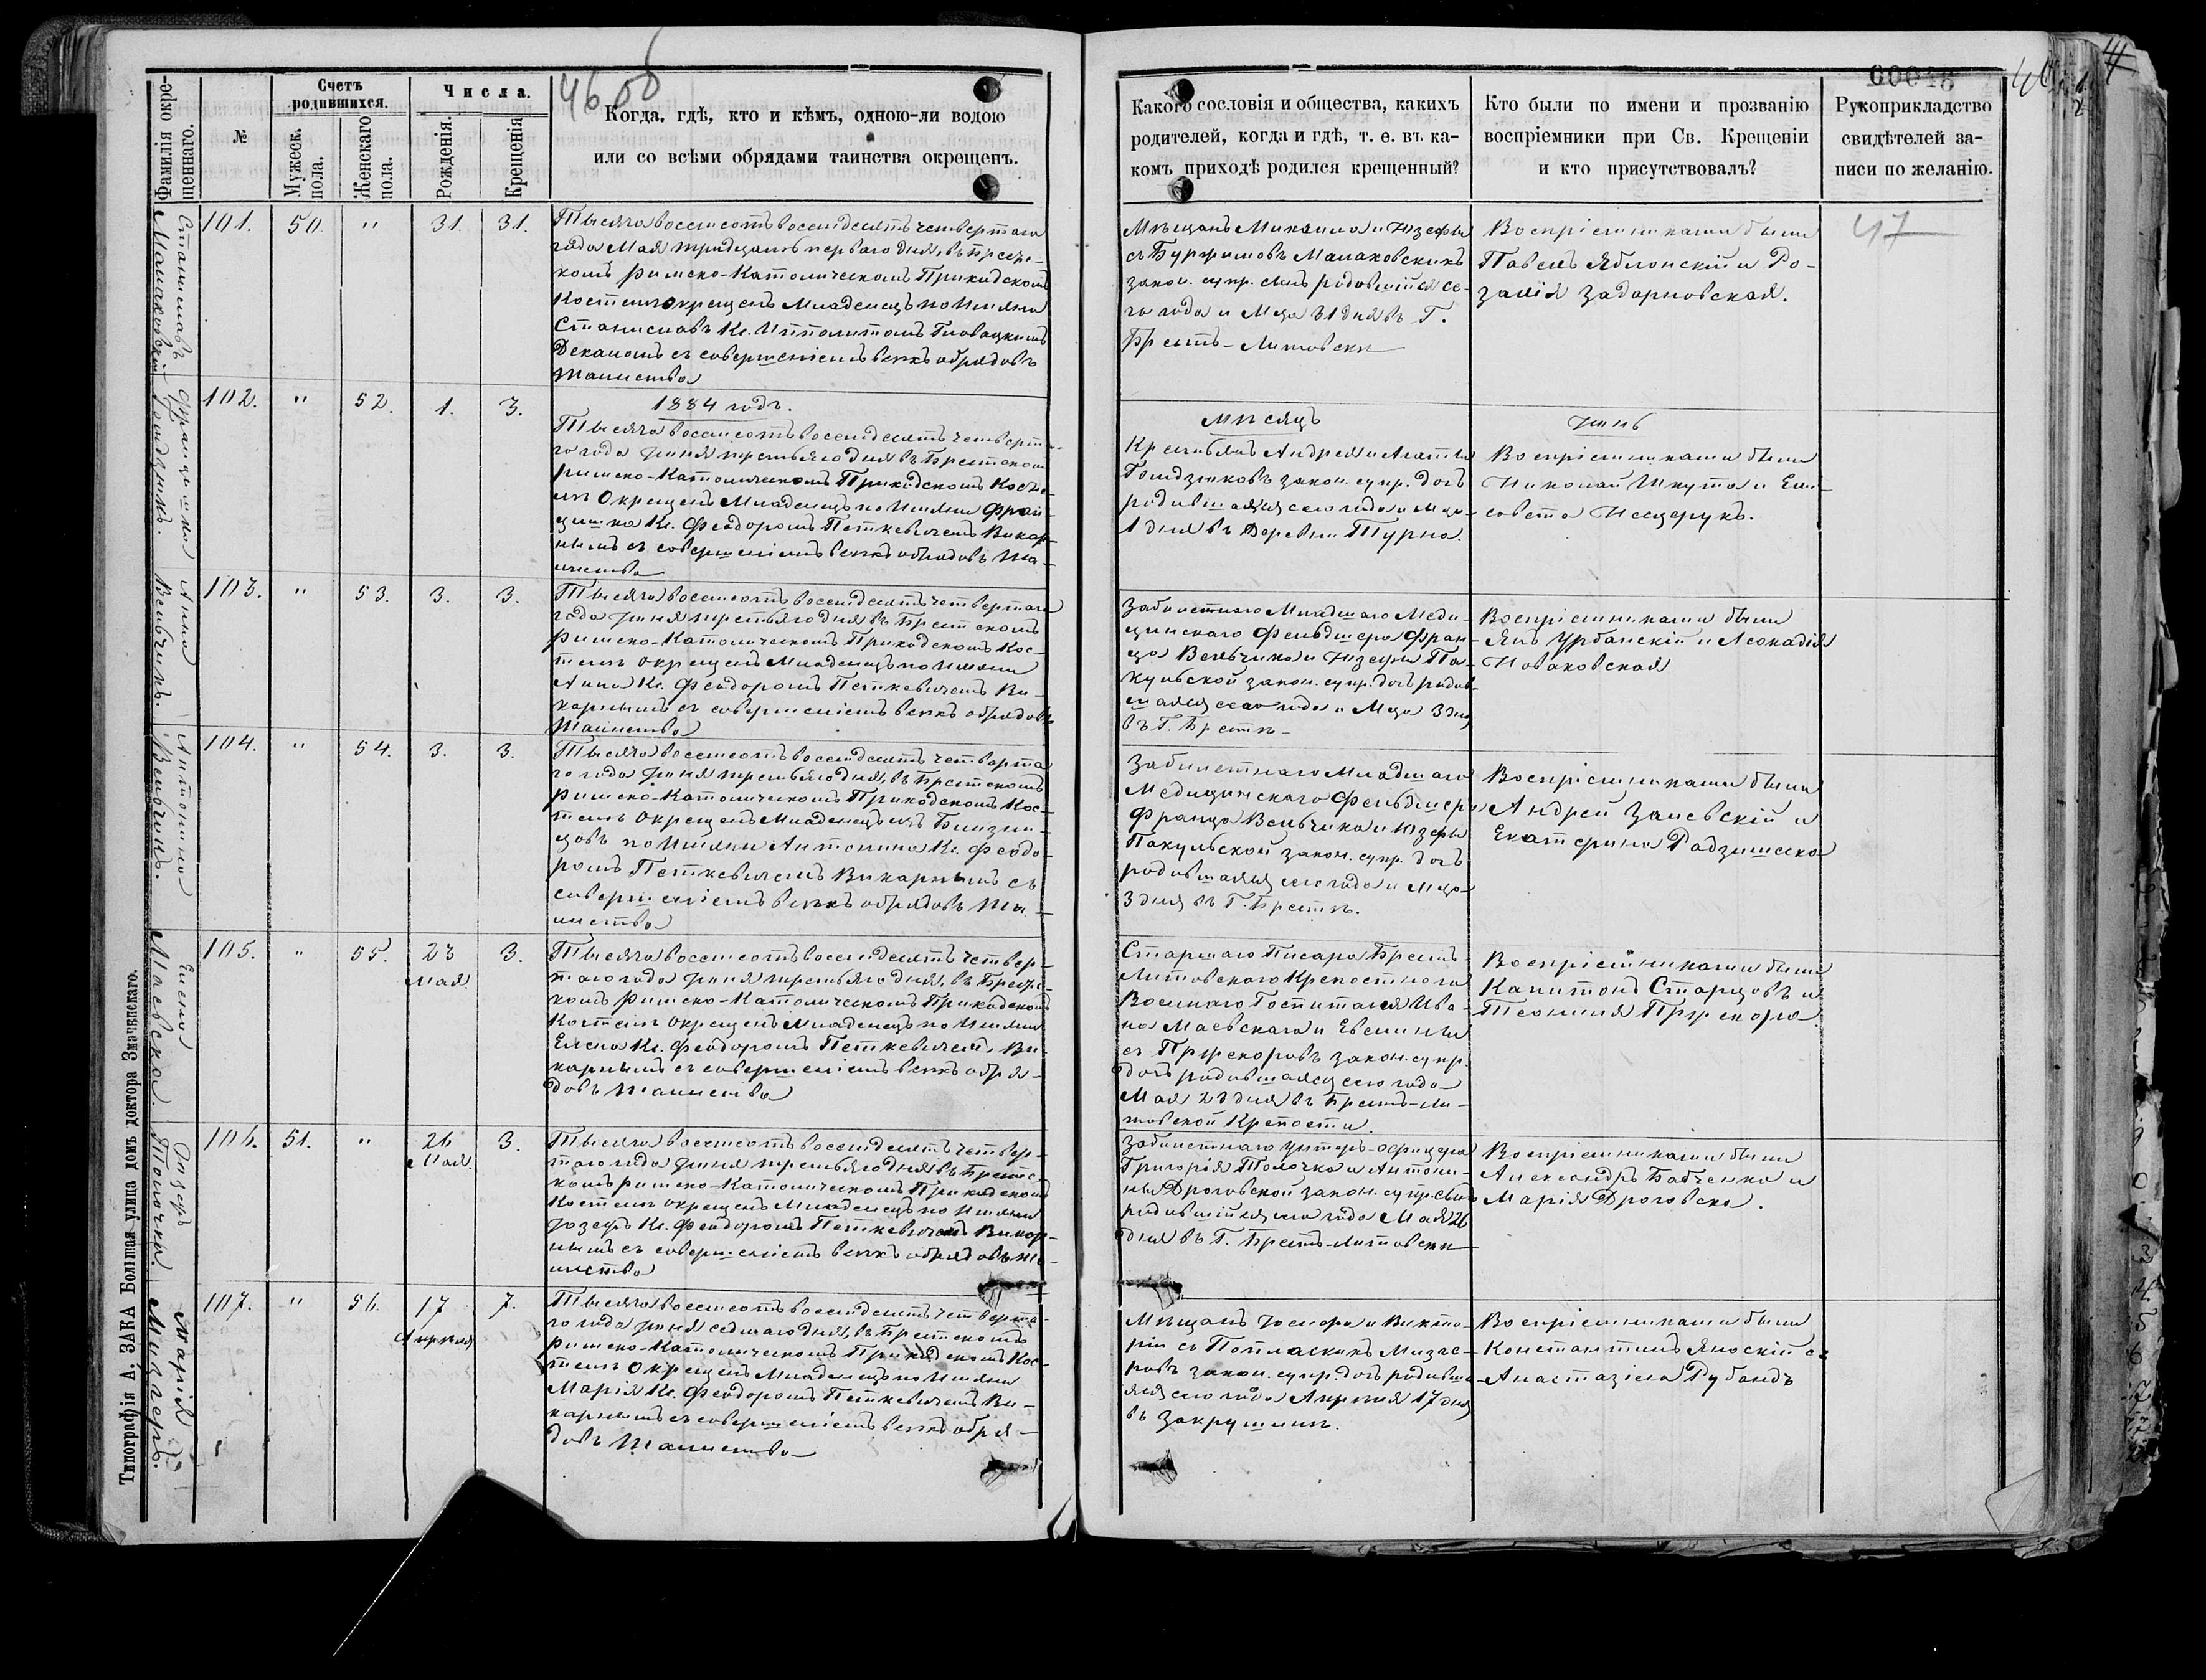 46 об
Фамилія окре-
щеннаго.
№
Счетъ
родившихся.
Мужеск.
пола.
Женскаго
пола.
Числа.
Рожденія.
Крещенія
Когда, гдѣ, кто и кѣмъ, одною-ли водою
или со всѣми обрядами таинства окрещенъ.
Станиславъ
Малаховскій
101.
50.
"
31.
31.
Тысяча восемсотъ восемдесятъ четвертаго
года Мая тридцать перваго дня, въ Брест-
комъ Римско-Католическомъ Приходскомъ
Костелѣ окрещенъ Младенецъ по Имяни
Станиславъ Кс. Ипполитомъ Гловацкимъ
Деканомъ съ совершеніемъ всѣхъ обрядовъ
таинства
Францишка
Голдзюкъ.
102.
"
52.
1.
3.
1884 годъ.
Тысяча восемсотъ восемдесятъ четверта-
го года Іюня третьяго дня въ Брестскомъ
Римско-Католическомъ Приходскомъ Косте-
лѣ Окрещенъ Младенецъ по Имяни Фран-
цишка Кс. Феодоромъ Петкевичемъ Викар-
нымъ съ совершеніемъ всѣхъ обрядовъ Та-
инства
Анна
Вельчикъ.
103.
"
53.
3.
3.
Тысяча восемсотъ восемдесятъ четвертаго
года Іюня третьяго дня въ Брестскомъ
Римско-Католическомъ Приходскомъ Кос-
телѣ окрещенъ Младенецъ по Имяни
Анна Кс. Феодоромъ Петкевичемъ Ви-
карнымъ съ совершеніемъ всѣхъ обрядовъ
Таинства
Антонина
Вельчикъ.
104.
"
54.
3.
3.
Тысяча восемсотъ восемдесятъ четверта
го года Іюня третьяго дня, въ Брестскомъ
Римско-Католическомъ Приходскомъ Кос-
телѣ Окрещенъ Младенецъ изъ Близне-
цовъ по Имяни Антонина Кс. Феодо-
ромъ Петкевичемъ Викарнымъ съ
совершеніемъ всѣхъ обрядовъ Та-
инства
Елена
Маевска.
105.
"
55.
23
Мая.
3.
Тысяча восемсотъ восемдесятъ четвер-
таго года Іюня третьяго дня, въ Брестс-
комъ Римско-Католическомъ Приходскомъ
Костелѣ окрещенъ Младенецъ по Имяни
Елена Кс. Феодоромъ Петкевичемъ Ви-
карнымъ съ совершеніемъ всѣхъ обря-
довъ таинства
Іозефъ
Толочко.
106.
51.
"
26
Мая.
3.
Тысяча восемсотъ восемдесятъ четвер-
таго года Іюня третьяго дня въ Брестс-
комъ Римско-Католическомъ Приходскомъ
Костелѣ окрещенъ Младенецъ по Имяни
Іозефъ Кс. Феодоромъ Петкевичемъ Викар-
нымъ съ совершеніемъ всѣхъ обрядовъ та-
инства
Марія
107.
"
56.
17
Апрѣля
7.
Тысяча восемсотъ восемдесятъ четверта-
го года Іюня седмаго дня, въ Брестскомъ
Римско-Католическомъ Приходскомъ Кос-
телѣ Окрещенъ Младенецъ по Имяни
Марія Кс. Феодоромъ Петкевичемъ Ви-
карнымъ съ совершеніемъ всѣхъ обря-
довъ Таинства
Типографія А. ЗАКА Большая улица домъ доктора Значвинскаго.
00046
Какого сословія и общества, какихъ
родителей, когда и гдѣ, т. е. въ ка-
комъ приходѣ родился крещенный?
Кто были по имени и прозванію
воспріемники при Св. Крещеніи
и кто присутствовалъ?
Рукоприкладство
свидѣтелей за-
писи по желанію.
47
Мѣщанъ Михаила и Юзефы
Малаховскихъ
закон. супр. сынъ родившійся се-
го года и Мца 31 дня въ Г.
Брестъ-Литовскѣ
Воспріемниками были
Павелъ Яблонскій и Ро-
залія Задарновская.
мѣсяцъ
Крестьянъ Андрея и Агаты
Голдзюковъ закон. супр. дочь
родившаяся сего года и мца
1 дня въ Деревни Турна.
Іюнь
Воспріемниками были
Николай Шкута и Ели-
совета Нещерукъ.
Забилетнаго Младшаго Меди-
цинскаго Фельдшера Фран-
ца Вельчика и Юзефы Па-
кульской закон. супр. дочь родив-
шаяся сего года и Мца 3 дня
въ Г. Брестѣ.
Воспріемниками были
Янъ Урбанскій и Леокадія
Новаковская
Забилетнаго Младшаго
Медицинскаго Фельдшера
Франца Вельчика и Юзефы
Пакульской закон. супр. дочь
родившаяся сего года и Мца
3 дня въ Г. Брестѣ.
Воспріемниками были
Андрей Заневскій и
Екатерина Радзишеска
Старшаго Писаря Брестъ-
Литовскаго Крепостнаго
Военнаго Госпиталя Ива-
на Маевскаго и
закон. супр.
дочь родившаяся сего года
Мая 23 дня въ Брестъ-Ли-
товской Крепости.
Воспріемниками были
Капитонъ Старцовъ и
Забилетнаго Унтеръ-офицера
Григорія Толочка и Антони-
ны Дроговской закон. супр. сынъ
родившійся сего года Мая 26
дня въ Г. Брестъ-Литовскѣ
Воспріемниками были
Александръ Бабченко и
Марія Дроговска.
Мѣщанъ Іосифа и Викто-
ріи съ
закон. супр. дочь родивша-
яся сего года Апрѣля 17 дня
въ Закрушинѣ.
Воспріемниками были
Константинъ Яноскій съ
Анастазіею Рубандъ